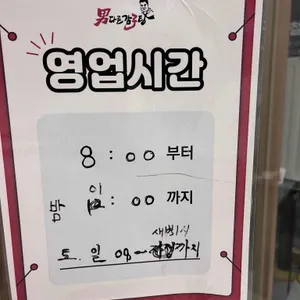 男다른감자탕
영업시간
8 : 00 부터
밤 : 00 까지
새벽
토. 일 08 ~ 까지